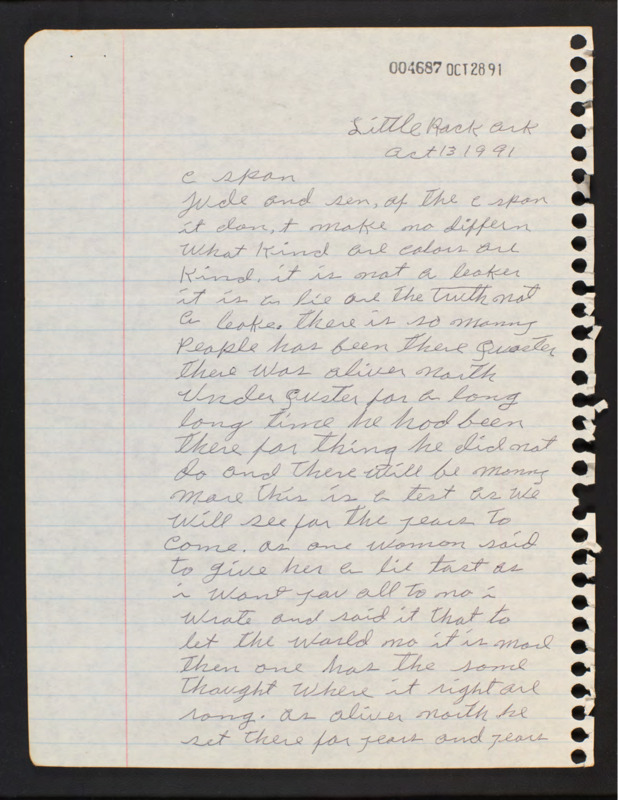 004687 OCT 28 91
Little Rock ark
oct 13 1991
c span
Jude and sen, of the c span
it don,t make no differn
what Kind are colors are
Kind. it is not a leaker
it is a lie are the truth not
a leake. there is so manny
People has been there Quester
there was oliver north
under Quster for a long
long time he had been
there for thing he did not
do and there will be manny
more this is a test as we
will see for the years to
come. as one women said
to give her a lie tast as
i want you all to no i
wrote and said it that to
let the world no it is more
then one has the some
thought where it right are
rong. as oliver north he
set there for years and years